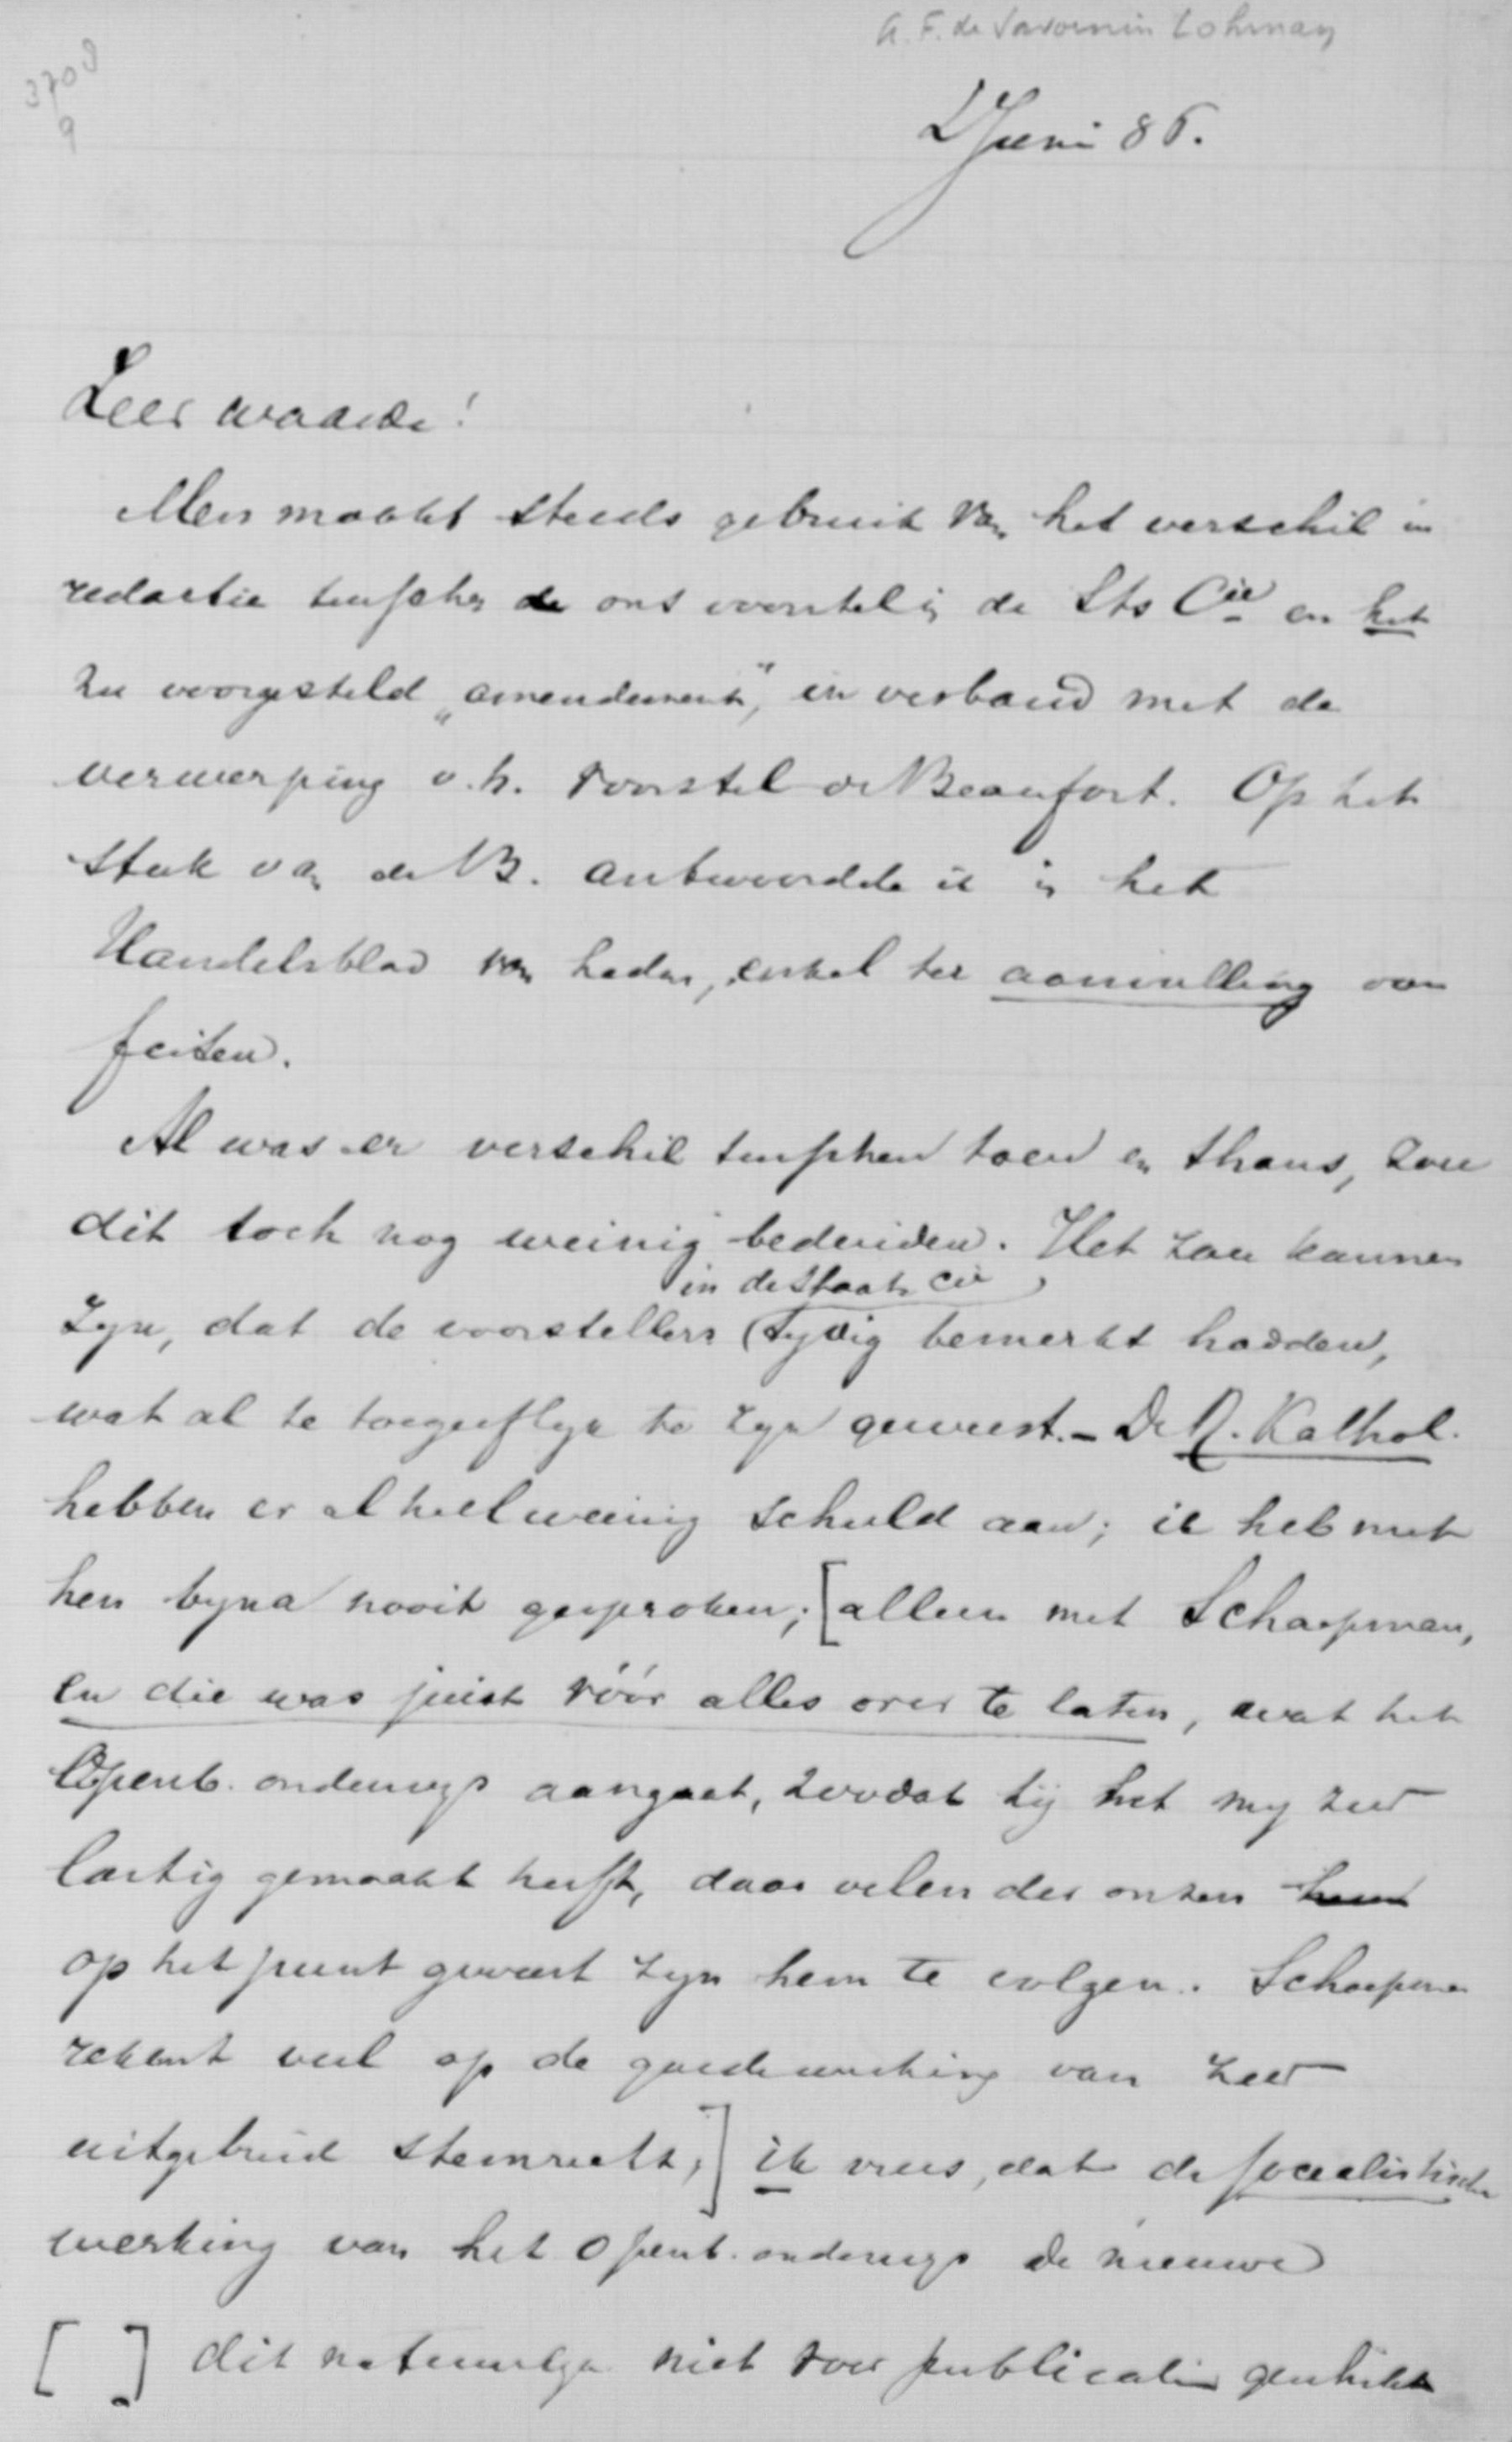 A.F. de Savornin Lohman
3708
9
2 Juni 86.
Zeer waarde!
Men maakt steeds gebruik van het verschil in
redactie tusschen de ons voorstel in de Sts Cie en het
nu voorgesteld „amendement", in verband met de
verwerping v.h. voorstel de Beaufort. Op het
stuk van de B. antwoordde ik in het
Handelsblad van heden, enkel ter aanvulling van
feiten.
Al was er verschil tusschen toen en thans, zou
dit toch nog weinig beduiden. Het zou kunnen
in de Staats Cie
zyn, dat de voorstellers (tydig bemerkt hadden,
wat al te toegeeflyk te zyn geweest. - De R. Kathol.
hebben er al heel weinig schuld aan; ik heb met
hen byna nooit gesproken; [alleen met Schaepman,
en die was juist vóór alles over te laten, wat het
Openb. onderwys aangaat, zoodat hij het my zeer
lastig gemaakt heeft, daar velen der onzen
op het punt geweest zyn hem te volgen. Schaepman
rekent veel op de goede werking van zeer
uitgebreid stemrecht;] ik vrees, dat de socialistische
werking van het openb. onderwys de nieuwe
[ ] dit natuurlyk niet voor publicatie geschikt